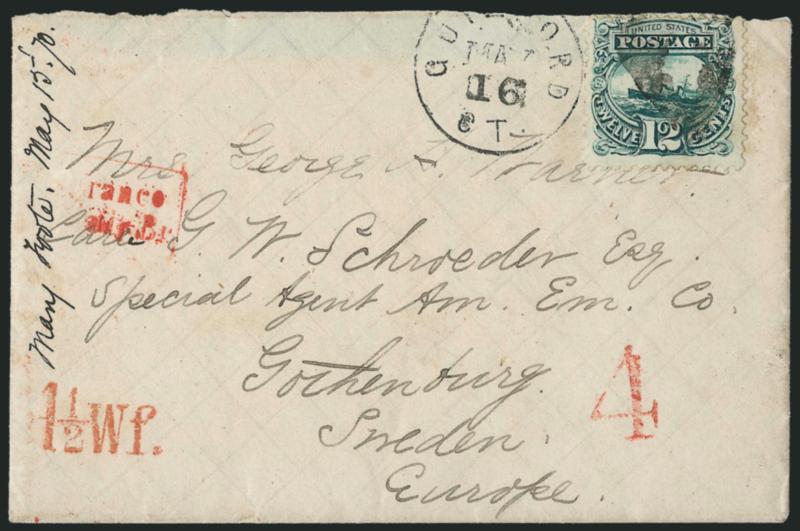 GUILFORD
MAY
16
CT.
UNITED STATES
POSTAGE
TWELVE 12 CENTS
Mrs George A. Warner
ranco
Care G. W. Schroeder Esq.
Special Agent Am. Em. Co.
Gothenburg.
Sweden.
Europe.
Mary Foote. May 15-70.
1½Wf.
4